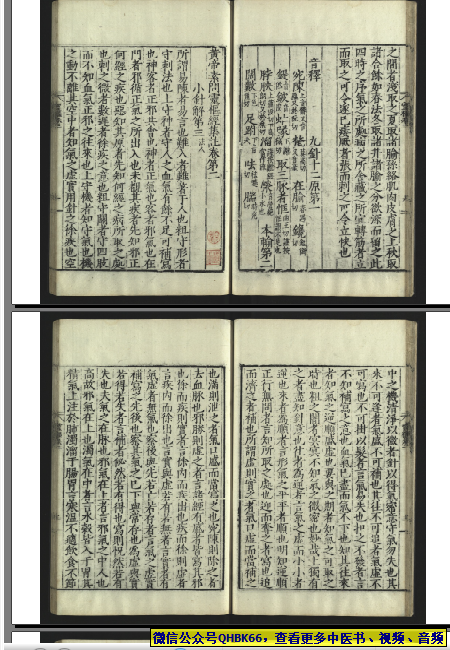 之間有淺取之夏取諸腧孫絡肌肉皮膚之上秋取
諸合餘如春法冬取諸井諸腧之分欲深而留之此
四時之序氣之所處病之所舍藏之所宜轉筋者立
而取之可令遂已痿厥者張而刺之可令立快也
音釋
九針十二原第一
本輸第二
黃帝素問靈樞經集註卷第二
小針解第三 法人
所謂易陳者易言也難入者難著于人也粗守形者
守刺法也上守神者守人之血氣有餘不足可補寫
也神客者正邪共會也神者正氣也客者邪氣也在
門者邪循正氣之所出入也未覩其疾者先知邪正
何經之疾也惡知其原者先知何經之病所取之處
也刺之微在數遲者徐疾之意也粗守關者守四肢
而不知血氣正邪之往來也上守機者知守氣也機
之動不離其空中者知氣之虛實用針之徐疾也空
中之機清淨以微者針以得氣密意守氣勿失也其
來不可逢者氣盛不可補也其往不可追者氣虛不
可寫也不可掛以髮者言氣易失也扣之不發者言
不知補寫之意也血氣已盡而氣不下也知其往來
者知氣之逆順盛虛也要與之期者知氣之可取之
時也粗之闇者冥冥不知氣之微密也妙哉上獨有
之者盡知針意也往者為逆者言氣之虛而小小者
逆也來者為順者言形氣之平平者順也明知逆順
正行無問者言知所取之處也迎而奪之者寫也追
而濟之者補也所謂虛則實之者氣口虛而當補之
也滿則泄之者氣口盛而當寫之也宛陳則除之者
去血脉也邪勝則虛之者言諸經有盛者皆寫其邪
也徐而疾則實者言徐內而疾出也疾而徐則虛者
言疾內而徐出也言實與虛若有若無者言實者有
氣虛者無氣也察後與先若亡若存者言氣之虛實
補寫之先後也察其氣之已下與常存也為虛與實
若得若失者言補者佖然若有得也寫則怳然若有
失也夫氣之在脉也邪氣在上者言邪氣之中人也
高故邪氣在上也濁氣在中者言水穀皆入于胃其
精氣上注於肺濁溜于腸胃言寒溫不適飲食不節
微信公众号QHBK66，查看更多中医书、视频、音频